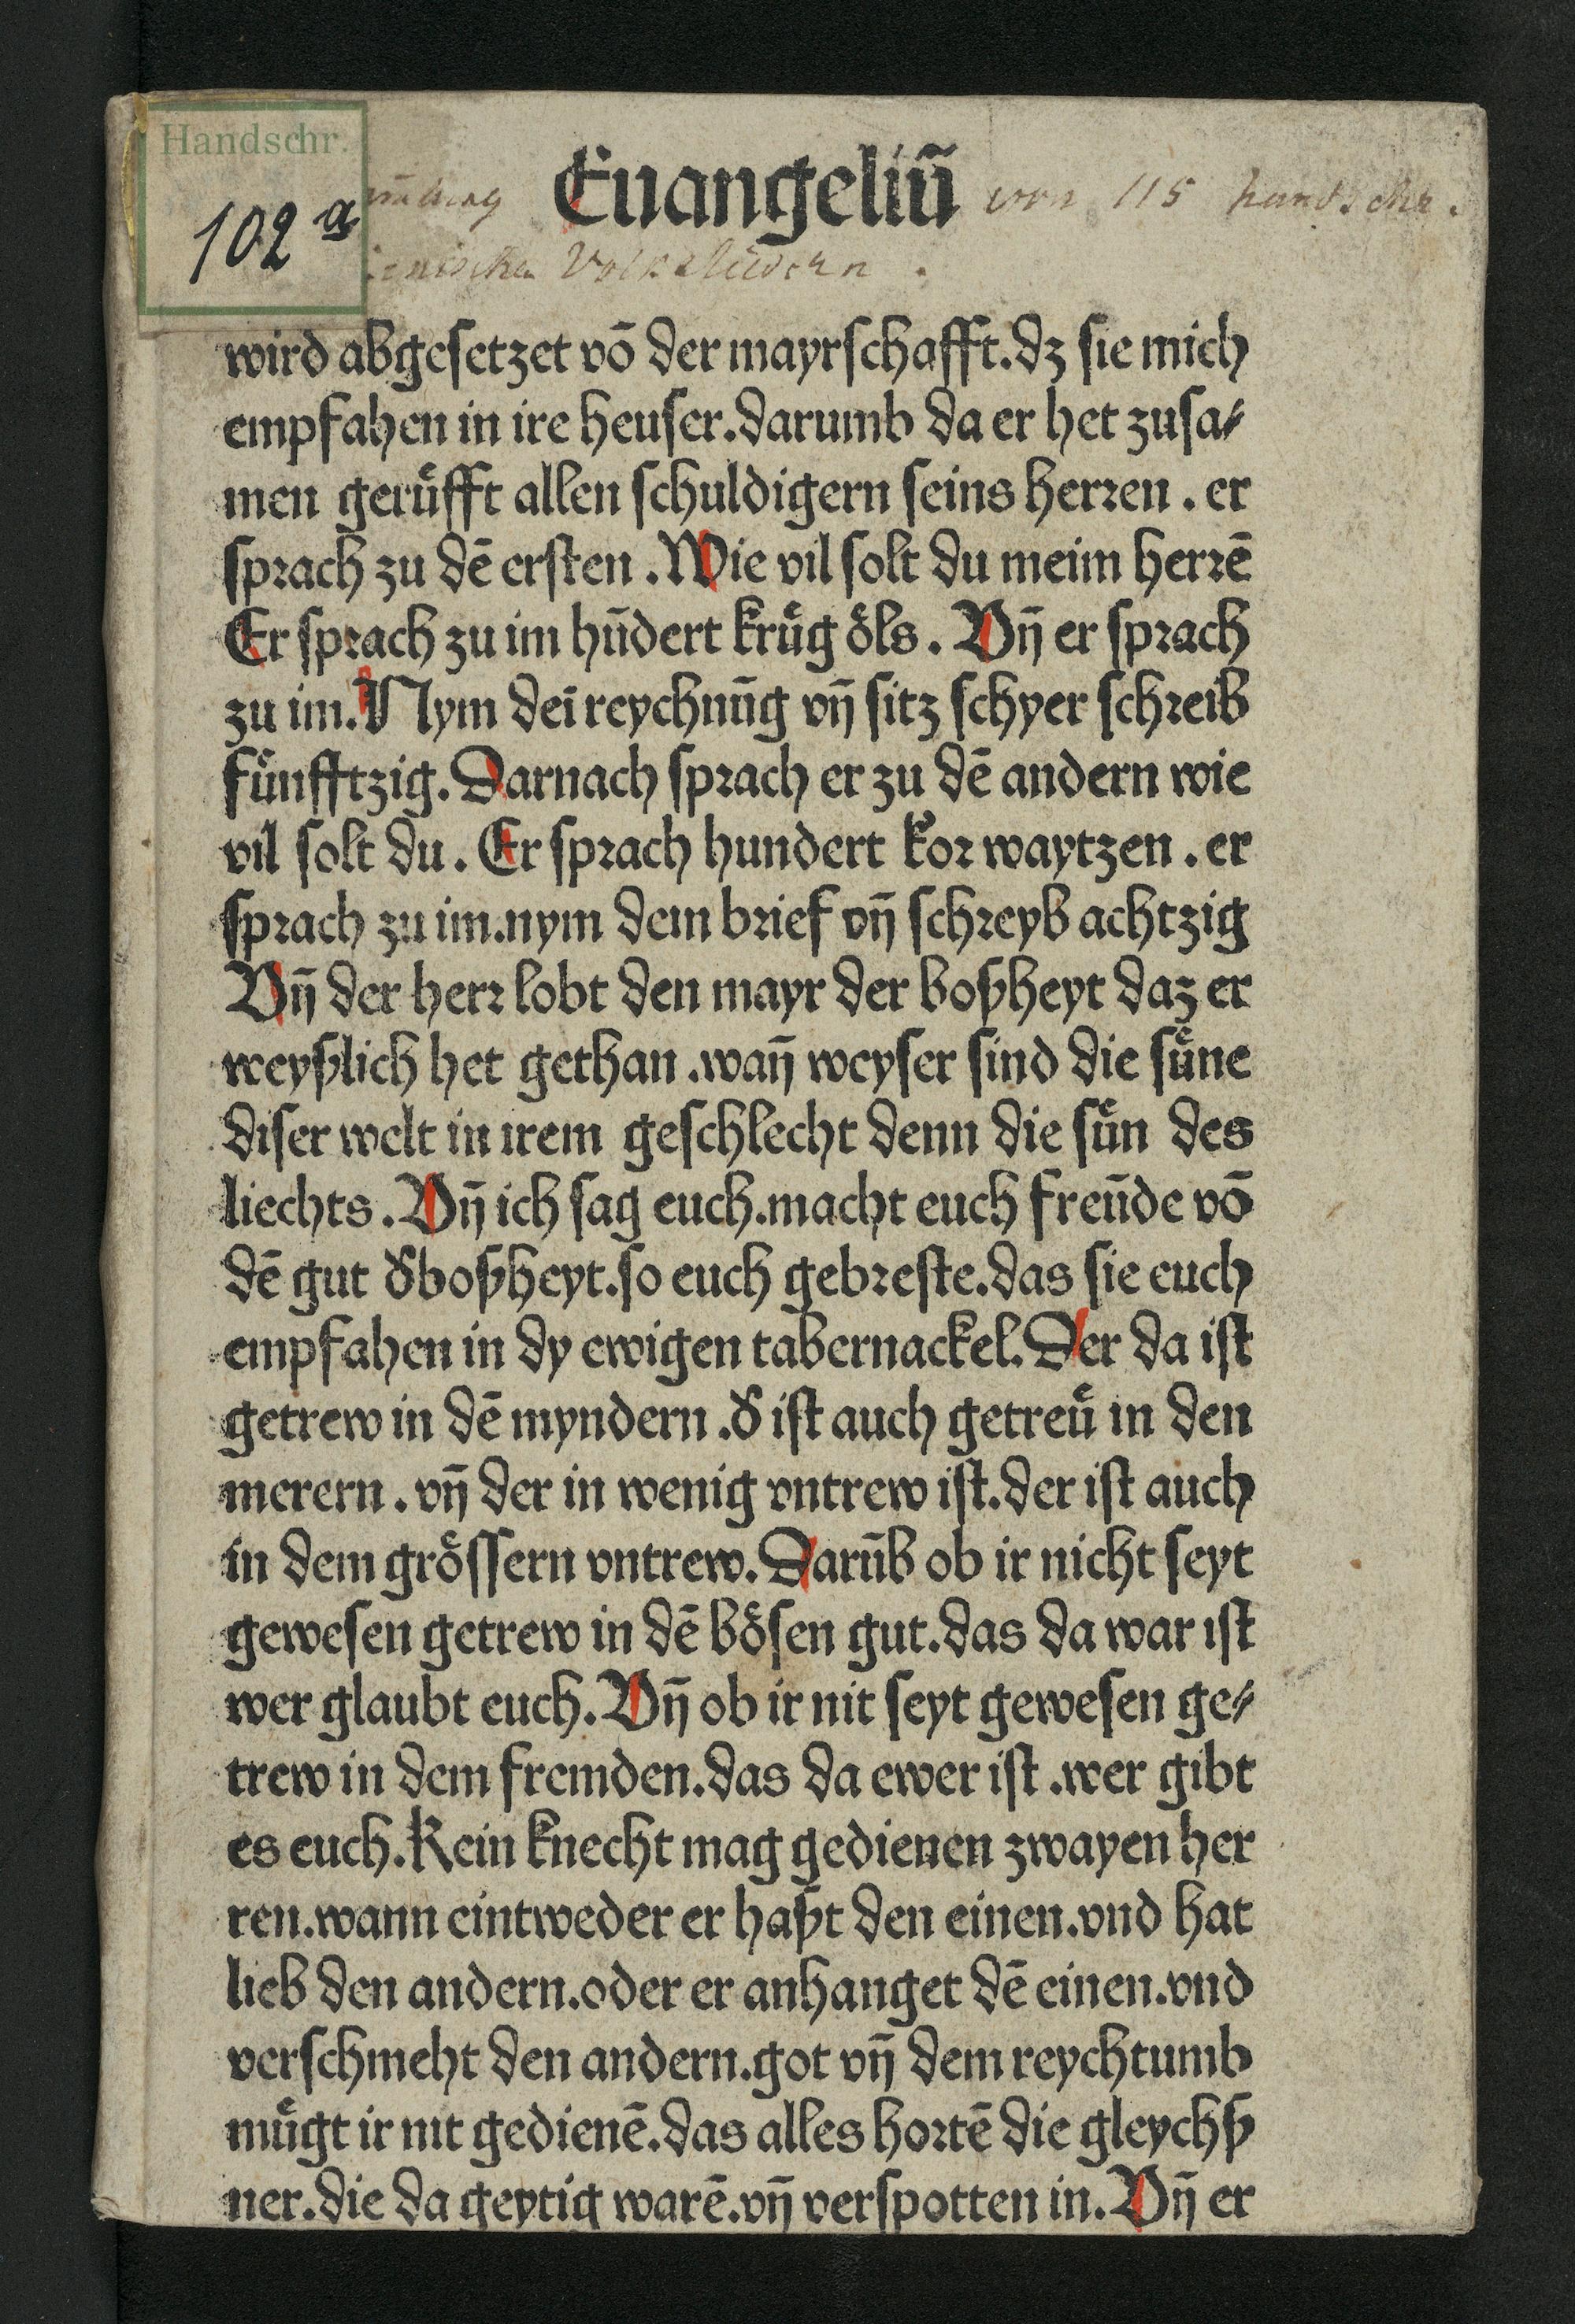 Handschr.
102 a
Euangeliū von 115 handschr.
Volksliedern.
wird abgesetzet vō der mayrschafft.dz sie mich
empfahen in ire heuser.darumb da er het zusa⸗
men gerůfft allen schuldigern seins herren . er
sprach zu dē ersten . Wie vil solt du meim herrē
Er sprach zu im hūdert krůg oͤls . Vn̄ er sprach
zu im. Nym dei reychnūg vn̄ sitz schyer schreib
fuͤnfftzig. Darnach sprach er zu dē andern wie
vil solt du . Er sprach hundert kor waytzen . er
sprach zu im.nym dein brief vn̄ schreyb achtzig
Vn̄ der herr lobt den mayr der boßheyt daz er
weyßlich het gethan .wan̄ weyser sind die suͤne
diser welt in irem geschlecht denn die suͤn des
liechts . Vn̄ ich sag euch.macht euch freūde vō
dē gut d̕ boßheyt.so euch gebreste.das sie euch
empfahen in dy ewigen tabernackel. Der da ist
getrew in dē myndern .d̕ ist auch getreuͤ in den
merern . vn̄ der in wenig vntrew ist.der ist auch
in dem groͤssern vntrew. Darūb ob ir nicht seyt
gewesen getrew in dē boͤsen gut.das da war ist
wer glaubt euch. Vn̄ ob ir nit seyt gewesen ge⸗
trew in dem fremden.das da ewer ist .wer gibt
es euch. Kein knecht mag gedienen zwayen her
ren.wann eintweder er haßt den einen.vnd hat
lieb den andern.oder er anhanget dē einen.vnd
verschmeht den andern.got vn̄ dem reychtumb
muͤgt ir nit gedienē.das alles hortē die gleychß
ner.die da geytig warē.vn̄ verspotten in. Vn̄ er